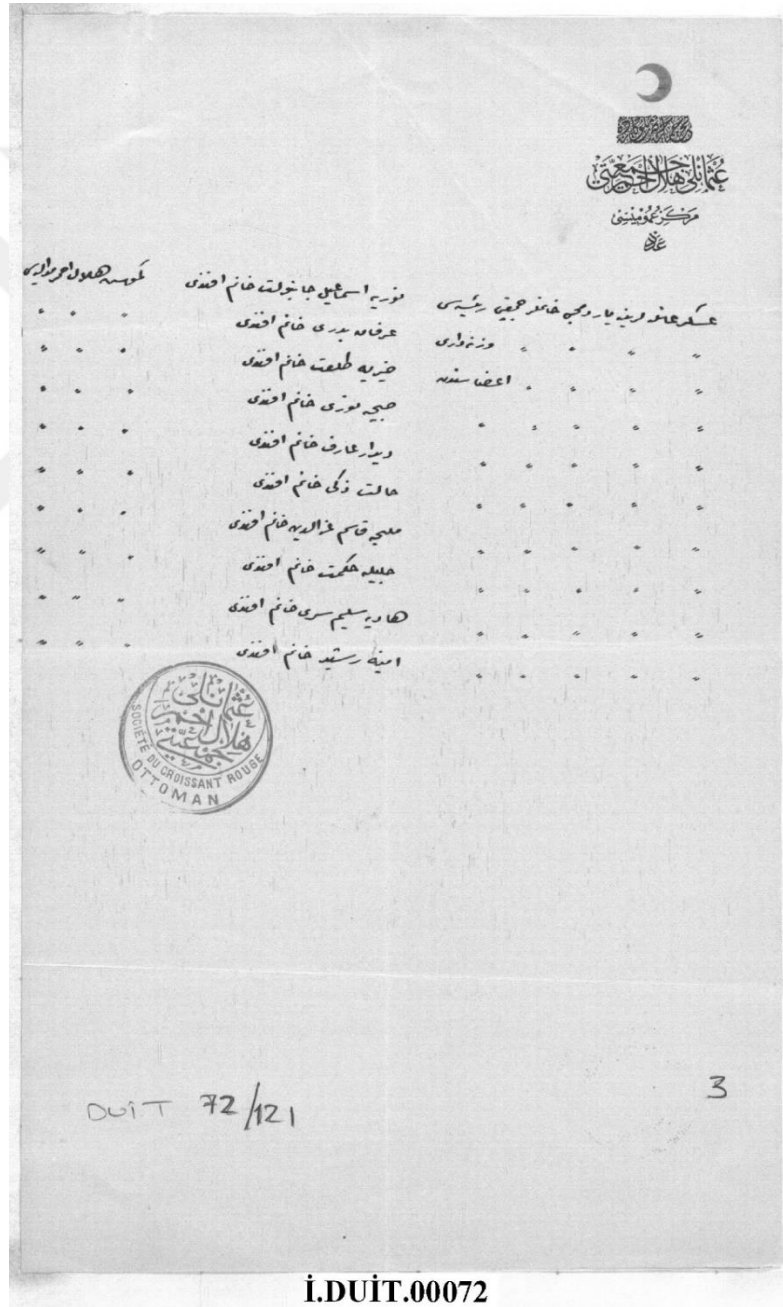 عثمانلی هلال احمر جمعیتی
مركز عمومیسی
عدد
عسكر عائله لرينه يار دمجی خانملر جمعيتی رئيسه سی فوزيه اسماعيل جانبولت خانم افندی گموش هلال احمر مداليه سی
" " " " وزنه داری عرفان بدری خانم افندی " " "
" " " " اعضاسندن خيريه طلعت خانم افندی " " "
" " " " " صبيحه فوزی خانم افندی " " "
" " " " " ديدار عارف خانم افندی " " "
" " " " " حالت ذكی خانم افندی " " "
" " " " " مليحه قاسم عزالدين خانم افندی " " "
" " " " " جليله حكمت خانم افندی " " "
" " " " " هاديه سليم سری خانم افندی " " "
" " " " " امينه رشيد خانم افندی " " "
عثمانلی هلال احمر جمعیتی
SOCIÉTÉ DU CROISSANT ROUGE
OTTOMAN
3
DUİT 72/121
İ.DUİT.00072